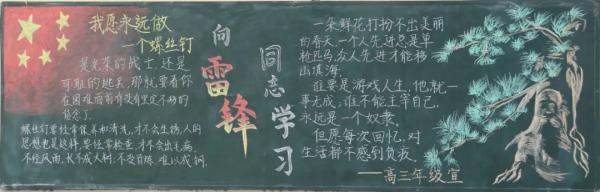 我愿永远做
一个螺丝钉
是光荣的战士,还是
可耻的逃兵,那就要看你
在困难面前有没有坚定不移的
信念了。
螺丝钉要经常保养和清洗,才不会生锈,人的
思想也是这样,要经常检查,才不会出毛病。
不经风雨,长不成大树,不受百炼,难以成钢。
向
雷
锋
同
志
学
习
一朵鲜花打扮不出美丽
的春天,一个人先进总是单
枪匹马,众人先进才能移
山填海。
谁要是游戏人生,他就一
事无成,谁不能主宰自己,
永远是一个奴隶。
但愿每次回忆,对
生活都不感到负疚。
——高三年级宣